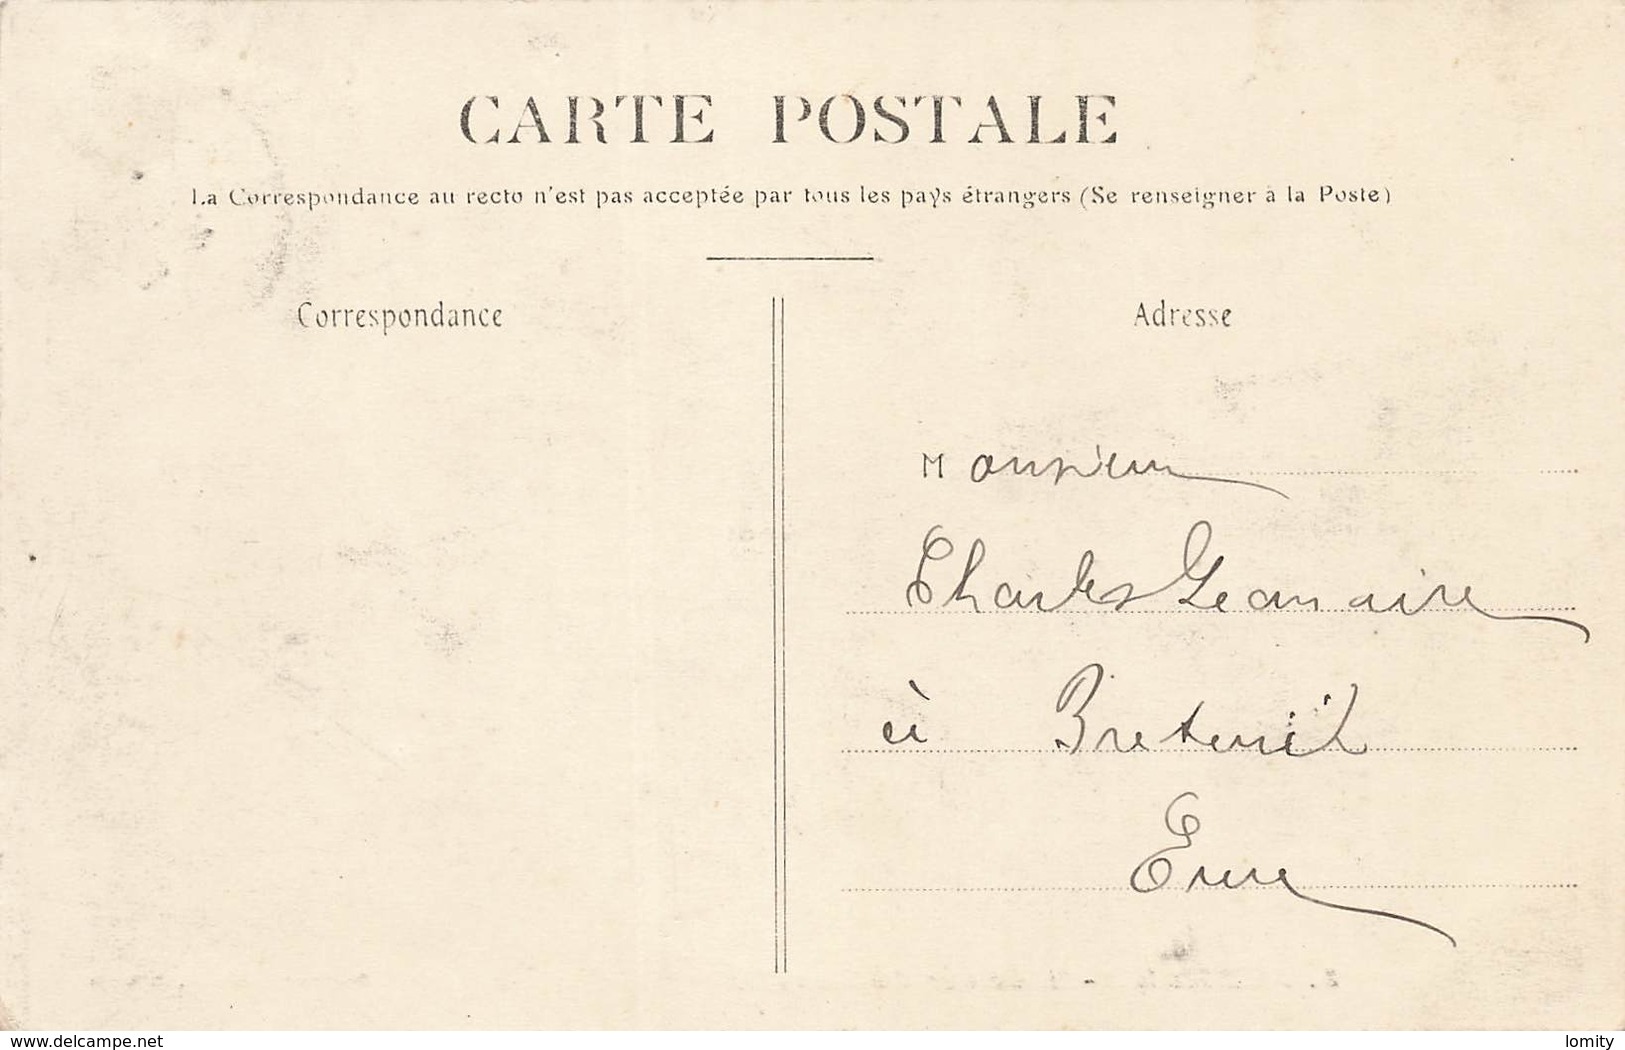 CARTE POSTALE
La Correspondance au recto n'est pas acceptée par tous les pays étrangers (Se renseigner à la Poste)
Correspondance
Adresse
Monsieur
Charles
à Breteuil
Eure
delcampe.net
lomity